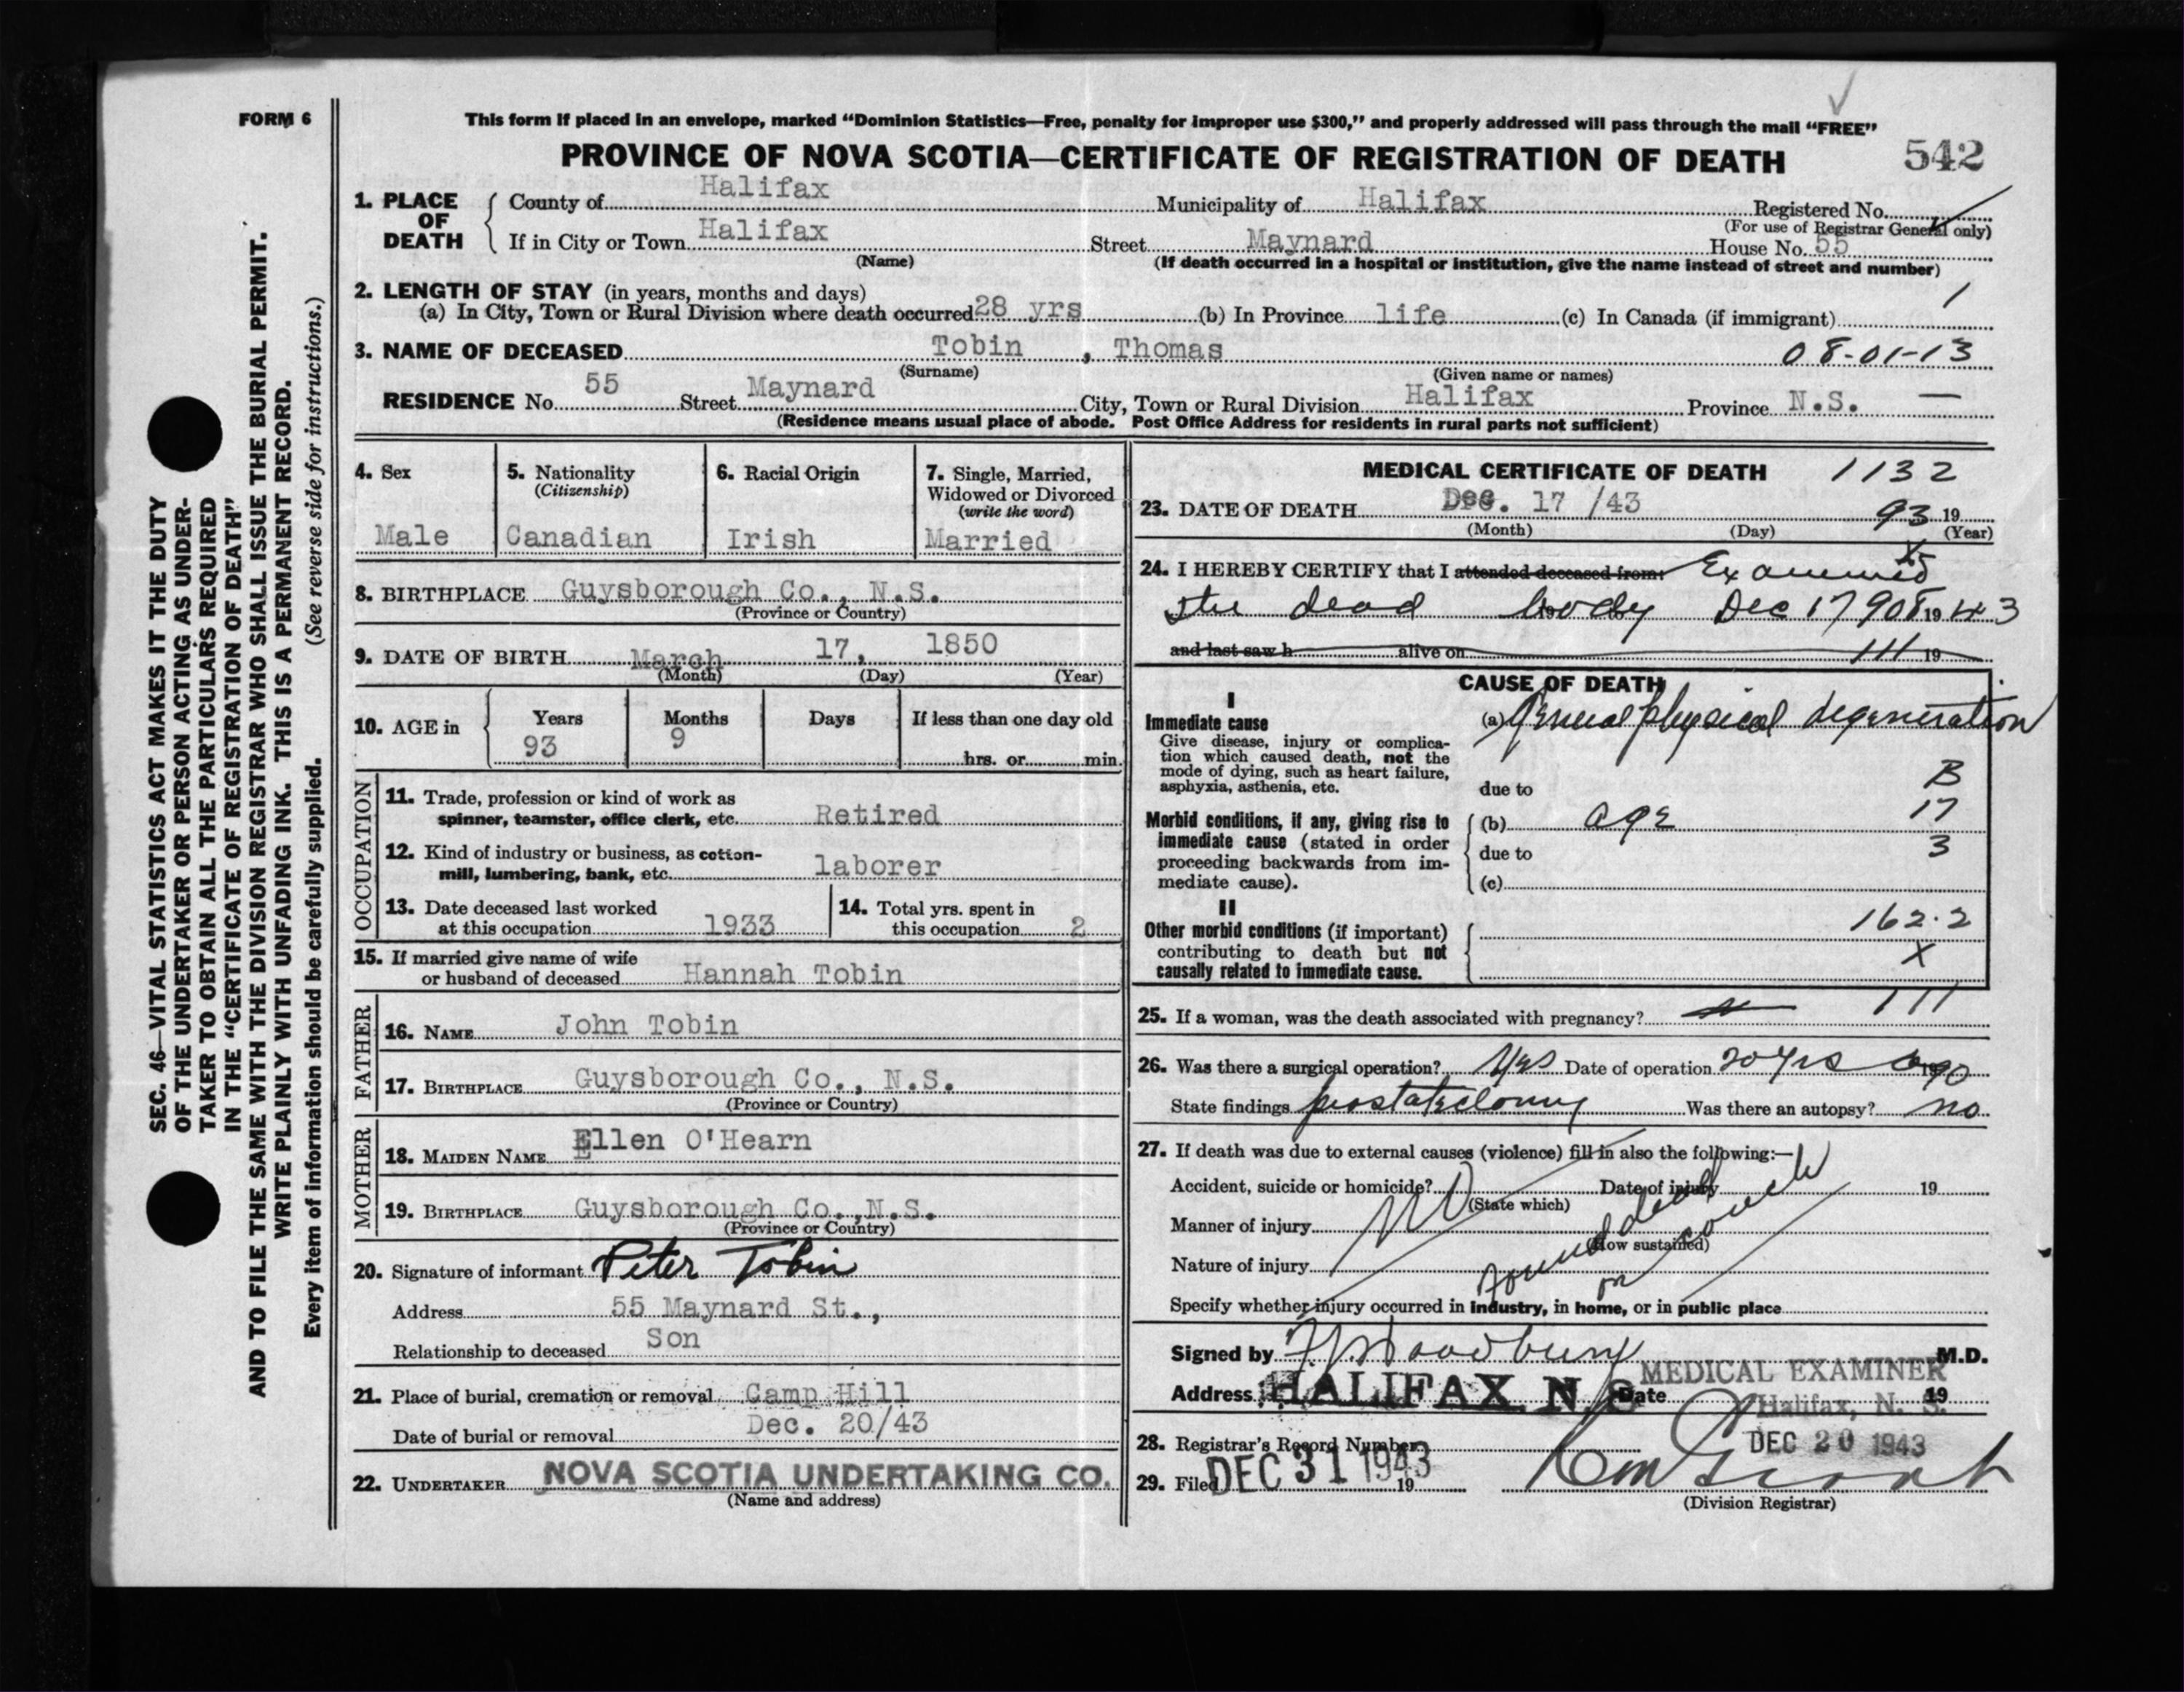 FORM 6
This form if placed in an envelope, marked "Dominion Statistics—Free, penalty for improper use $300," and properly addressed will pass through the mail "FREE"
PROVINCE OF NOVA SCOTIA—CERTIFICATE OF REGISTRATION OF DEATH 542
1. PLACE OF DEATH County of Halifax Municipality of Halifax Registered No.
(For use of Registrar General only)
If in City or Town Halifax Street Maynard House No. 55
(Name) (If death occurred in a hospital or institution, give the name instead of street and number)
2. LENGTH OF STAY (in years, months and days) 1
(a) In City, Town or Rural Division where death occurred 28 yrs (b) In Province life (c) In Canada (if immigrant)
3. NAME OF DECEASED Tobin , Thomas 08-01-13
(Surname) (Given name or names)
RESIDENCE No. 55 Street Maynard City, Town or Rural Division Halifax Province N.S. —
(Residence means usual place of abode. Post Office Address for residents in rural parts not sufficient)
4. Sex Male
5. Nationality (Citizenship) Canadian
6. Racial Origin Irish
7. Single, Married, Widowed or Divorced (write the word) Married
8. BIRTHPLACE Guysborough Co., N.S.
(Province or Country)
9. DATE OF BIRTH March 17, 1850
(Month) (Day) (Year)
10. AGE in Years 93 Months 9 Days If less than one day old
hrs. or min.
OCCUPATION
11. Trade, profession or kind of work as
spinner, teamster, office clerk, etc. Retired
12. Kind of industry or business, as cotton-
mill, lumbering, bank, etc. laborer
13. Date deceased last worked
at this occupation 1933
14. Total yrs. spent in
this occupation 2
15. If married give name of wife
or husband of deceased Hannah Tobin
FATHER
16. NAME John Tobin
17. BIRTHPLACE Guysborough Co., N.S.
(Province or Country)
MOTHER
18. MAIDEN NAME Ellen O'Hearn
19. BIRTHPLACE Guysborough Co.,N.S.
(Province or Country)
20. Signature of informant Peter Tobin
Address 55 Maynard St.,
Relationship to deceased Son
21. Place of burial, cremation or removal Camp Hill
Date of burial or removal Dec. 20/43
22. UNDERTAKER NOVA SCOTIA UNDERTAKING CO.
(Name and address)
MEDICAL CERTIFICATE OF DEATH 1132
23. DATE OF DEATH Dec. 17 /43 93 19
(Month) (Day) (Year)
24. I HEREBY CERTIFY that I attended deceased from: Examined
the dead body Dec 17 908 19 43
and last saw h alive on 111 19
CAUSE OF DEATH
I
Immediate cause (a) General physical degeneration
Give disease, injury or complica-
tion which caused death, not the
mode of dying, such as heart failure,
asphyxia, asthenia, etc. due to B
Morbid conditions, if any, giving rise to (b) age 17
immediate cause (stated in order due to 3
proceeding backwards from im-
mediate cause). (c)
II
Other morbid conditions (if important) 162.2
contributing to death but not X
causally related to immediate cause.
25. If a woman, was the death associated with pregnancy? 111
26. Was there a surgical operation? Yes Date of operation 20 yrs ago
State findings prostatectomy Was there an autopsy? no
27. If death was due to external causes (violence) fill in also the following:—
Accident, suicide or homicide? Date of injury 19
(State which)
Manner of injury NO found dead on couch
(How sustained)
Nature of injury
Specify whether injury occurred in industry, in home, or in public place
Signed by Woodbury M.D.
MEDICAL EXAMINER
Address HALIFAX, N. S. Date 19
Halifax, N. S.
28. Registrar's Record Number DEC 20 1943
29. Filed DEC 31 1943 19
(Division Registrar)
SEC. 46—VITAL STATISTICS ACT MAKES IT THE DUTY
OF THE UNDERTAKER OR PERSON ACTING AS UNDER-
TAKER TO OBTAIN ALL THE PARTICULARS REQUIRED
IN THE "CERTIFICATE OF REGISTRATION OF DEATH"
AND TO FILE THE SAME WITH THE DIVISION REGISTRAR WHO SHALL ISSUE THE BURIAL PERMIT.
WRITE PLAINLY WITH UNFADING INK. THIS IS A PERMANENT RECORD.
Every item of information should be carefully supplied. (See reverse side for instructions.)